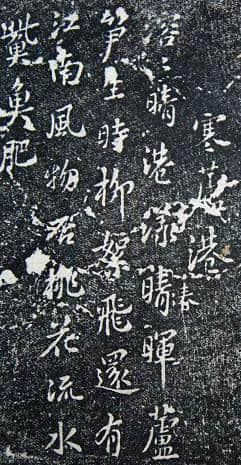 寒芦港
溶〻晴港漾晴春暉蘆
笋生時柳絮飛還有
江南風物否桃花流水
鮆魚肥